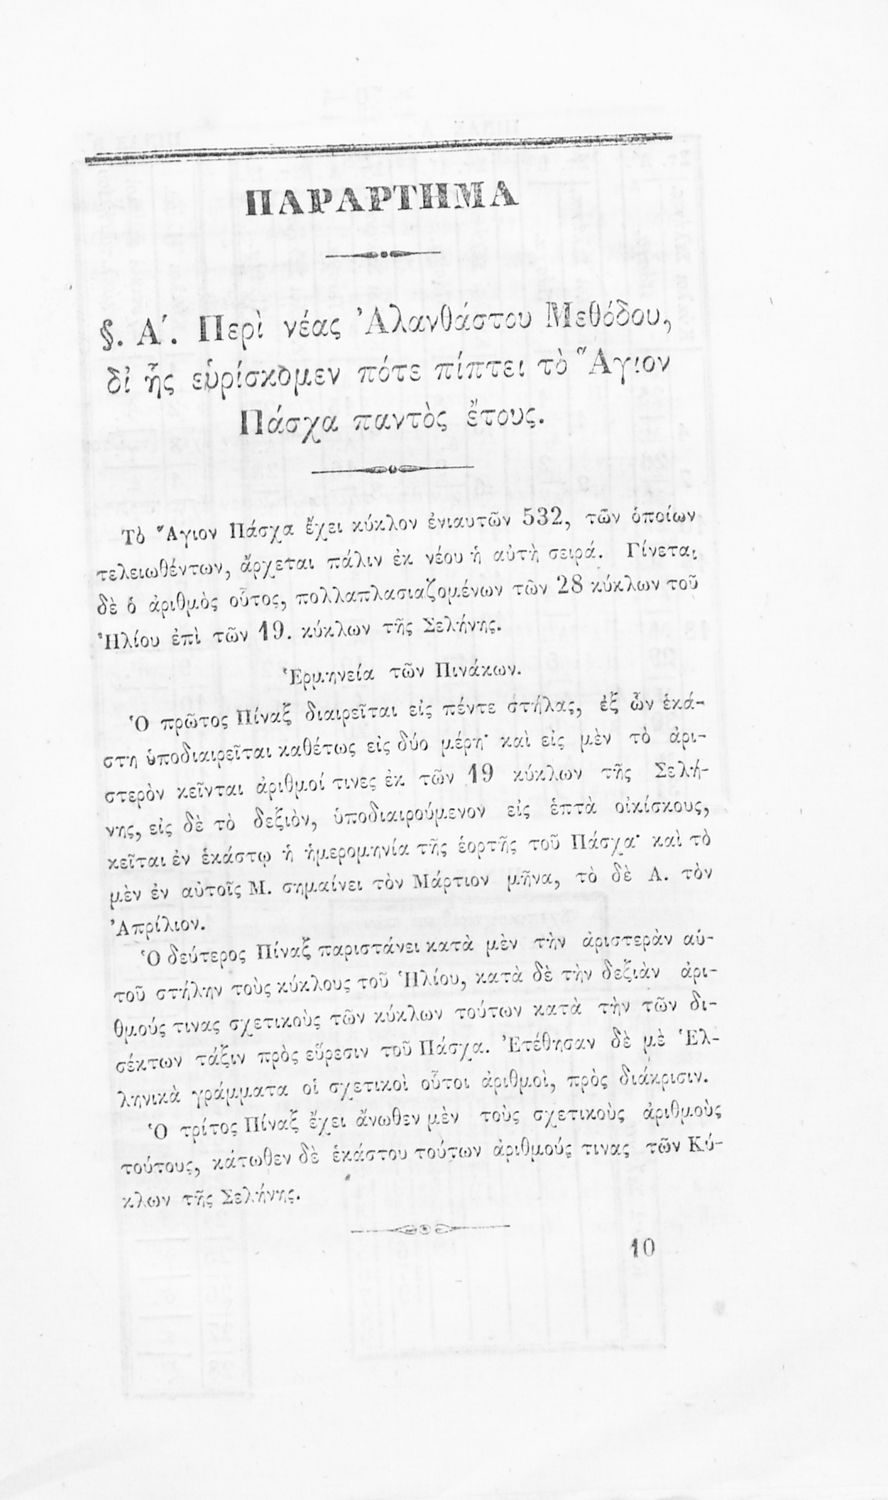 ΠΑΡΑΡΤΗΜΑ
§. Α΄. Περὶ νέας Ἀλανθάστου Μεθόδου,
δι' ἧς εὑρίσκομεν πότε πίπτει τὸ Ἅγιον
Πάσχα παντὸς ἔτους.
Τὸ Ἅγιον Πάσχα ἔχει κύκλον ἐνιαυτῶν 532, τῶν ὁποίων
τελειωθέντων, ἄρχεται πάλιν ἐκ νέου ἡ αὐτὴ σειρά. Γίνεται
δὲ ὁ ἀριθμὸς οὗτος, πολλαπλασιαζομένων τῶν 28 κύκλων τοῦ
Ἡλίου ἐπὶ τῶν 19. κύκλων τῆς Σελήνης.
Ἑρμηνεία τῶν Πινάκων.
Ὁ πρῶτος Πίναξ διαιρεῖται εἰς πέντε στήλας, ἐξ ὧν ἑκά-
στη ὑποδιαιρεῖται καθέτως εἰς δύο μέρη· καὶ εἰς μὲν τὸ ἀρι-
στερὸν κεῖνται ἀριθμοί τινες ἐκ τῶν 19 κύκλων τῆς Σελή-
νης, εἰς δὲ τὸ δεξιὸν, ὑποδιαιρούμενον εἰς ἑπτὰ οἰκίσκους,
κεῖται ἐν ἑκάστῳ ἡ ἡμερομηνία τῆς ἑορτῆς τοῦ Πάσχα· καὶ τὸ
μὲν ἐν αὐτοῖς Μ. σημαίνει τὸν Μάρτιον μῆνα, τὸ δὲ Α. τὸν
Ἀπρίλιον.
Ὁ δεύτερος Πίναξ παριστάνει κατὰ μὲν τὴν ἀριστερὰν αὑ-
τοῦ στήλην τοὺς κύκλους τοῦ Ἡλίου, κατὰ δὲ τὴν δεξιὰν ἀρι-
θμούς τινας σχετικοὺς τῶν κύκλων τούτων κατὰ τὴν τῶν δι-
σέκτων τάξιν πρὸς εὕρεσιν τοῦ Πάσχα. Ἐτέθησαν δὲ μὲ Ἑλ-
ληνικὰ γράμματα οἱ σχετικοὶ οὗτοι ἀριθμοὶ, πρὸς διάκρισιν.
Ὁ τρίτος Πίναξ ἔχει ἄνωθεν μὲν τοὺς σχετικοὺς ἀριθμοὺς
τούτους, κάτωθεν δὲ ἑκάστου τούτων ἀριθμούς τινας τῶν Κύ-
κλων τῆς Σελήνης.
10